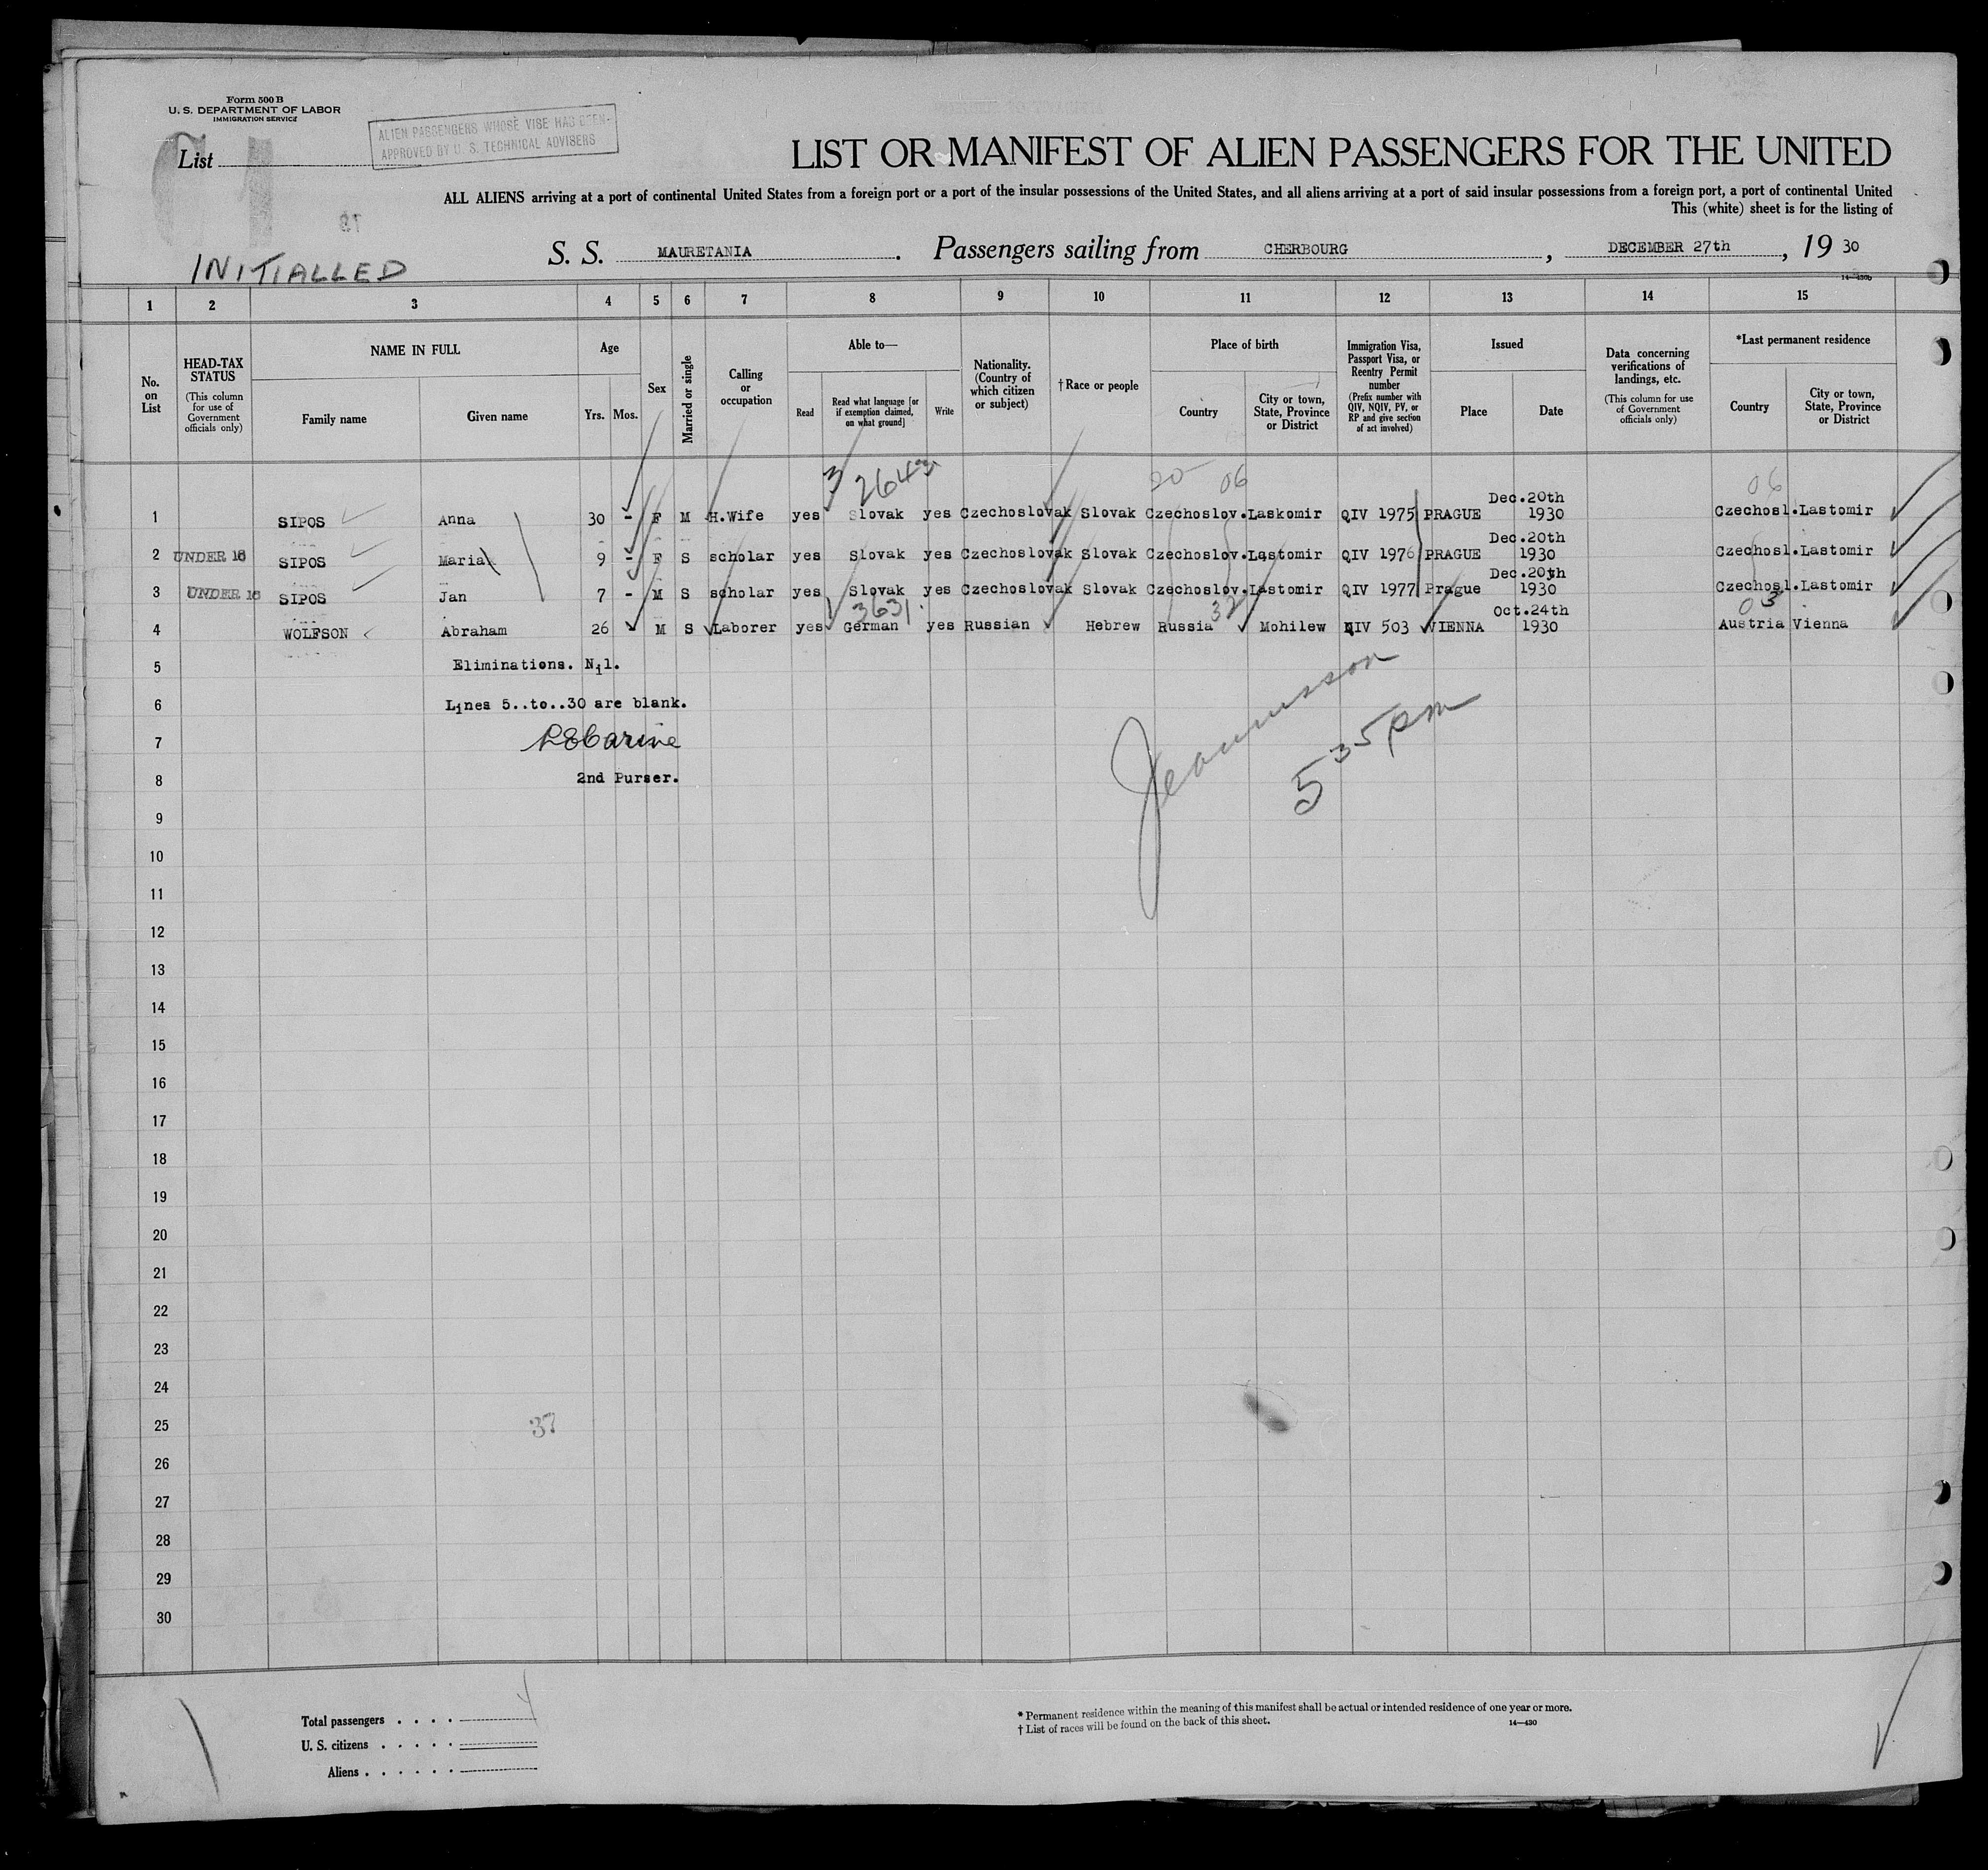 Form 500 B
U. S. DEPARTMENT OF LABOR
IMMIGRATION SERVICE
ALIEN PASSENGERS WHOSE VISE HAS BEEN
APPROVED BY U. S. TECHNICAL ADVISERS
List
61
LIST OR MANIFEST OF ALIEN PASSENGERS FOR THE UNITED
ALL ALIENS arriving at a port of continental United States from a foreign port or a port of the insular possessions of the United States, and all aliens arriving at a port of said insular possessions from a foreign port, a port of continental United
This (white) sheet is for the listing of
INITIALLED
S. S. MAURETANIA . Passengers sailing from CHERBOURG , DECEMBER 27th , 19 30
14—430b
1 2 3 4 5 6 7 8 9 10 11 12 13 14 15
No. on List
HEAD-TAX STATUS (This column for use of Government officials only)
NAME IN FULL
Family name
Given name
Age
Yrs.
Mos.
Sex
Married or single
Calling or occupation
Able to—
Read
Read what language [or if exemption claimed, on what ground]
Write
Nationality. (Country of which citizen or subject)
†Race or people
Place of birth
Country
City or town, State, Province or District
Immigration Visa, Passport Visa, or Reentry Permit number (Prefix number with QIV, NQIV, PV, or RP and give section of act involved)
Issued
Place
Date
Data concerning verifications of landings, etc. (This column for use of Government officials only)
*Last permanent residence
Country
City or town, State, Province or District
3 2643 20 06 06
1 SIPOS Anna 30 - F M H.Wife yes Slovak yes Czechoslovak Slovak Czechoslov. Laskomir QIV 1975 PRAGUE Dec.20th 1930 Czechosl. Lastomir
2 UNDER 16 SIPOS Maria 9 - F S scholar yes Slovak yes Czechoslovak Slovak Czechoslov. Lastomir QIV 1976 PRAGUE Dec.20th 1930 Czechosl. Lastomir
3 UNDER 16 SIPOS Jan 7 - M S scholar yes Slovak yes Czechoslovak Slovak Czechoslov. Lastomir QIV 1977 Prague Dec.20th 1930 Czechosl. Lastomir
3631 32 03
4 WOLFSON Abraham 26 - M S Laborer yes German yes Russian Hebrew Russia Mohilew QIV 503 VIENNA Oct.24th 1930 Austria Vienna
5 Eliminations. Nil.
6 Lines 5..to..30 are blank.
7
8 2nd Purser.
5 35 pm
9
10
11
12
13
14
15
16
17
18
19
20
21
22
23
24
25 37
26
27
28
29
30
Total passengers . . . . 4
U. S. citizens . . . . .
Aliens . . . . . .
* Permanent residence within the meaning of this manifest shall be actual or intended residence of one year or more.
† List of races will be found on the back of this sheet.
14—430